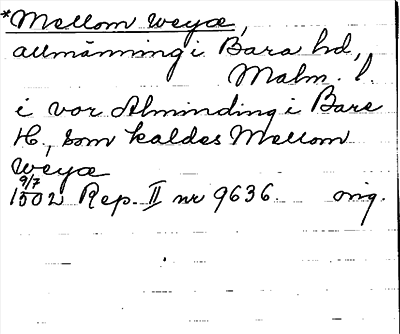 *Mellom weyæ,
allmänning i Bara hd,
Malm. l.
i vor Alminding i Bare
H., som kaldes Mellom
weyæ
9/7
1502 Rep. II nr 9636. orig.